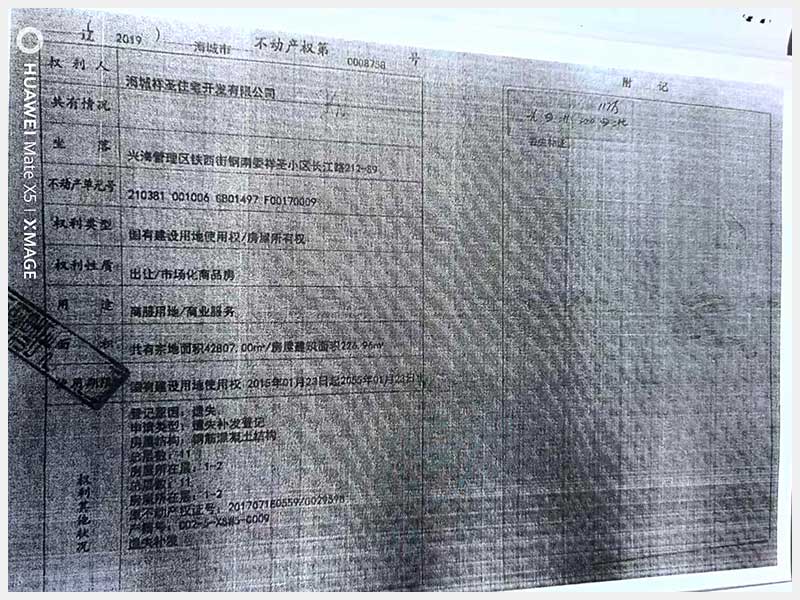 辽 ( 2019 ) 海城市 不动产权第 0008758 号
权利人 海城祥圣住宅开发有限公司
共有情况
坐落 兴海管理区铁西街钢南委祥圣小区长江路212-S9
不动产单元号 210381 001006 GB01497 F00170009
权利类型 国有建设用地使用权/房屋所有权
权利性质 出让/市场化商品房
用途 商服用地/商业服务
面积 共有宗地面积42807.00㎡/房屋建筑面积226.96㎡
使用期限 国有建设用地使用权 2015年01月23日起2055年01月23日
权利其他状况
登记原因：遗失
申请类型：遗失补发登记
房屋结构：钢筋混凝土结构
总层数：11
房屋所在层：1-2
总层数：11
房屋所在层：1-2
原不动产权证号：
遗失补发
附记
HUAWEI Mate X5 | XMAGE